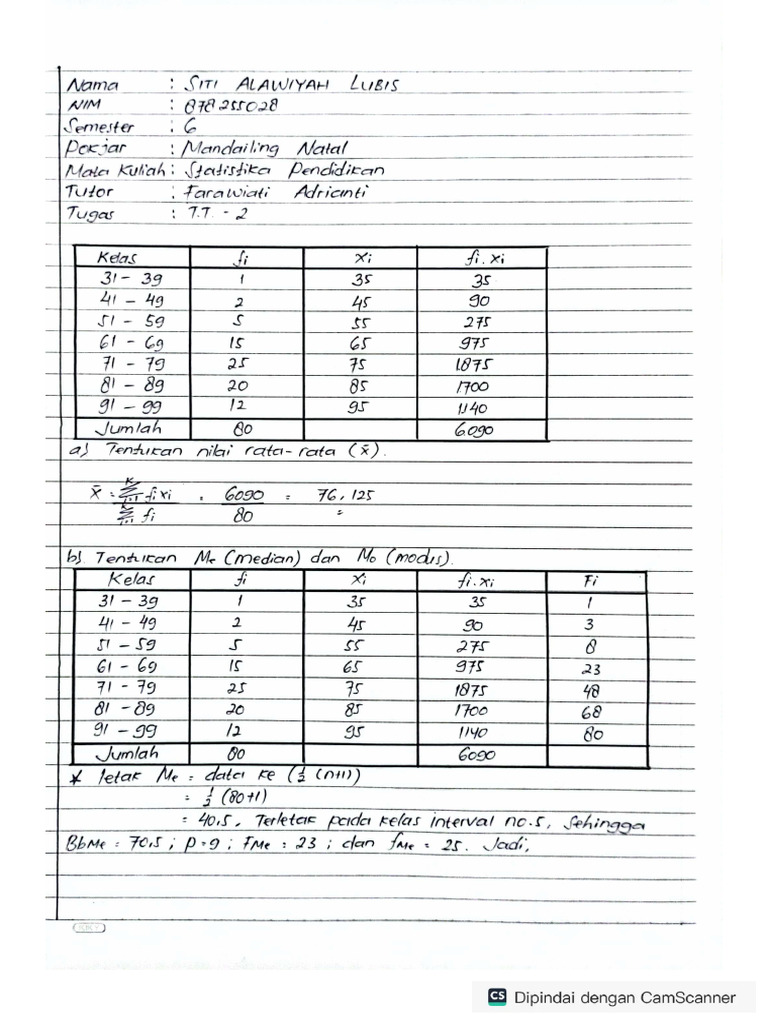 Nama : SITI ALAWIYAH LUBIS
NIM : 878255028
Semester : 6
Pokjar : Mandailing Natal
Mata Kuliah : Statistika Pendidikan
Tutor : Farawiati Adrianti
Tugas : T.T. - 2
Kelas fi xi fi.xi
31 - 39 1 35 35
41 - 49 2 45 90
51 - 59 5 55 275
61 - 69 15 65 975
71 - 79 25 75 1875
81 - 89 20 85 1700
91 - 99 12 95 1140
Jumlah 80 6090
a) Tentukan nilai rata-rata (x̄).
x̄ = Σ fi xi / Σ fi = 6090 / 80 = 76,125
b) Tentukan Me (median) dan Mo (modus).
Kelas fi xi fi.xi Fi
31 - 39 1 35 35 1
41 - 49 2 45 90 3
51 - 59 5 55 275 8
61 - 69 15 65 975 23
71 - 79 25 75 1875 48
81 - 89 20 85 1700 68
91 - 99 12 95 1140 80
Jumlah 80 6090
* letak Me = data ke (½ (n+1))
= ½ (80+1)
= 40,5, Terletak pada kelas interval no.5, sehingga
BbMe = 70,5 ; p = 9 ; FMe = 23 ; dan fMe = 25. Jadi,
CS Dipindai dengan CamScanner